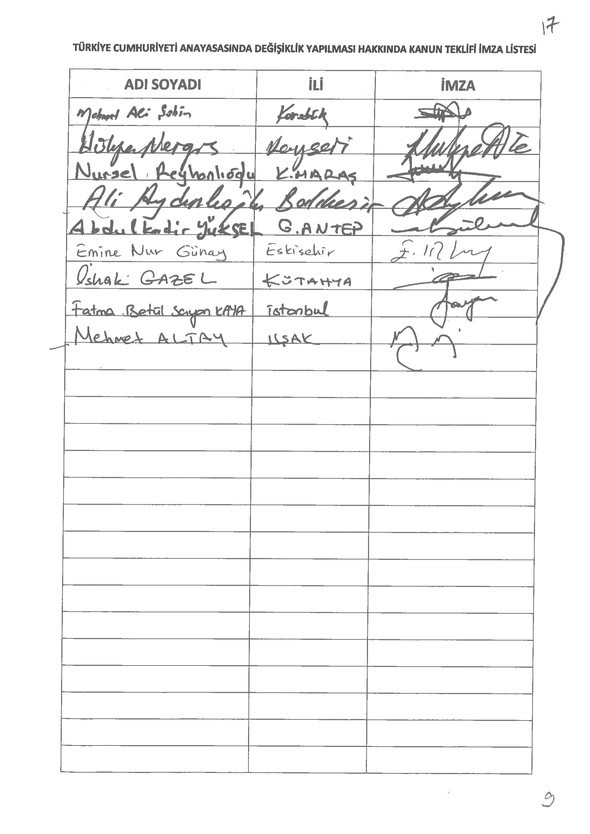 17
TÜRKİYE CUMHURİYETİ ANAYASASINDA DEĞİŞİKLİK YAPILMASI HAKKINDA KANUN TEKLİFİ İMZA LİSTESİ
ADI SOYADI İLİ İMZA
Mehmet Ali Şahin Karabük
Hülya Nergis Kayseri
Nursel Reyhanlıoğlu K.MARAŞ
Ali Aydınlıoğlu Balıkesir
Abdulkadir YÜKSEL G.ANTEP
Emine Nur Günay Eskisehir
İshak GAZEL KÜTAHYA
Fatma Betül Sayan KAYA istanbul
Mehmet ALTAY UŞAK
9